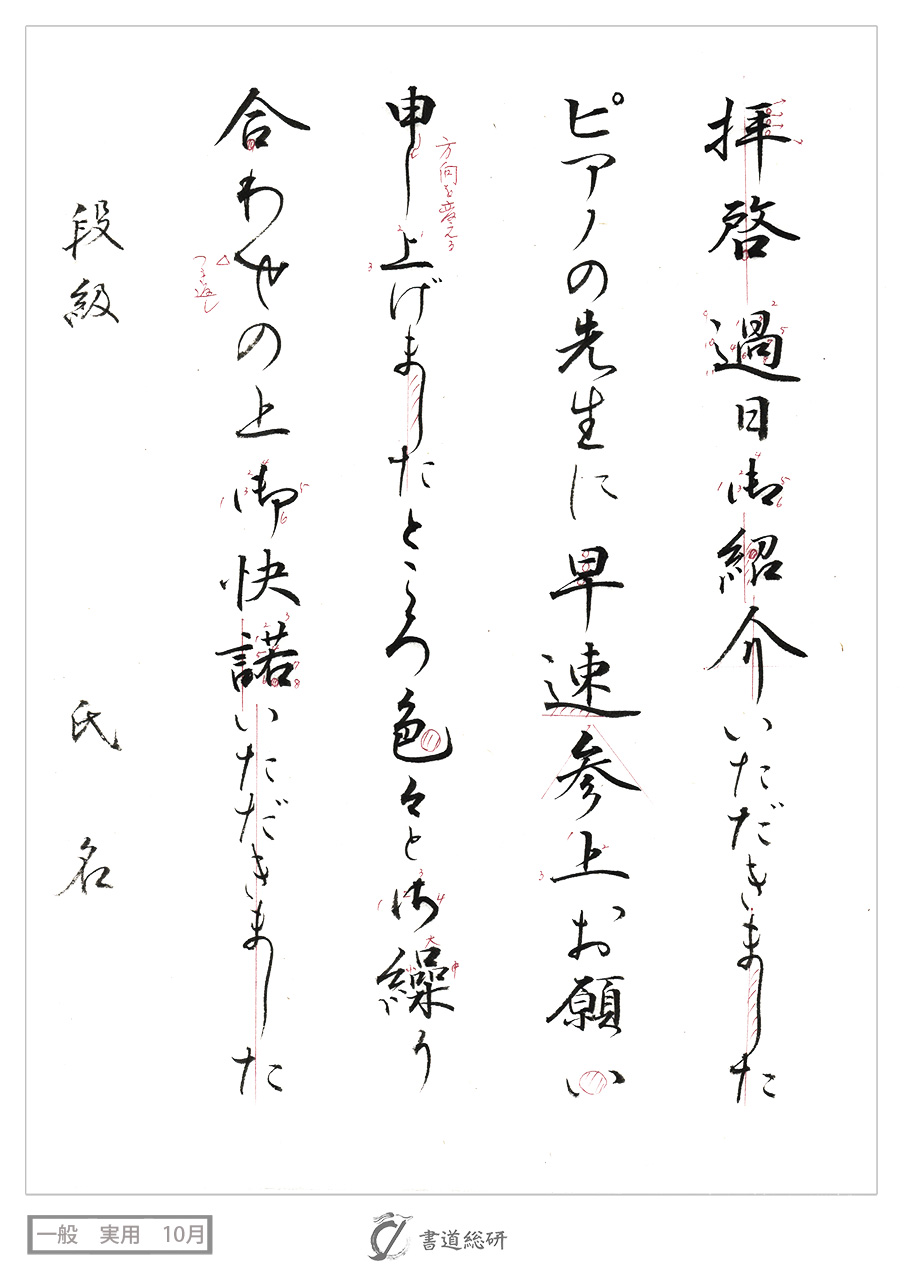 拝啓 過日御紹介いただきました
ピアノの先生に早速参上お願い
申し上げましたところ色々と御繰り
方向を変える
合わせの上御快諾いただきました
つき返し
段級 氏名
一般 実用 10月
書道総研